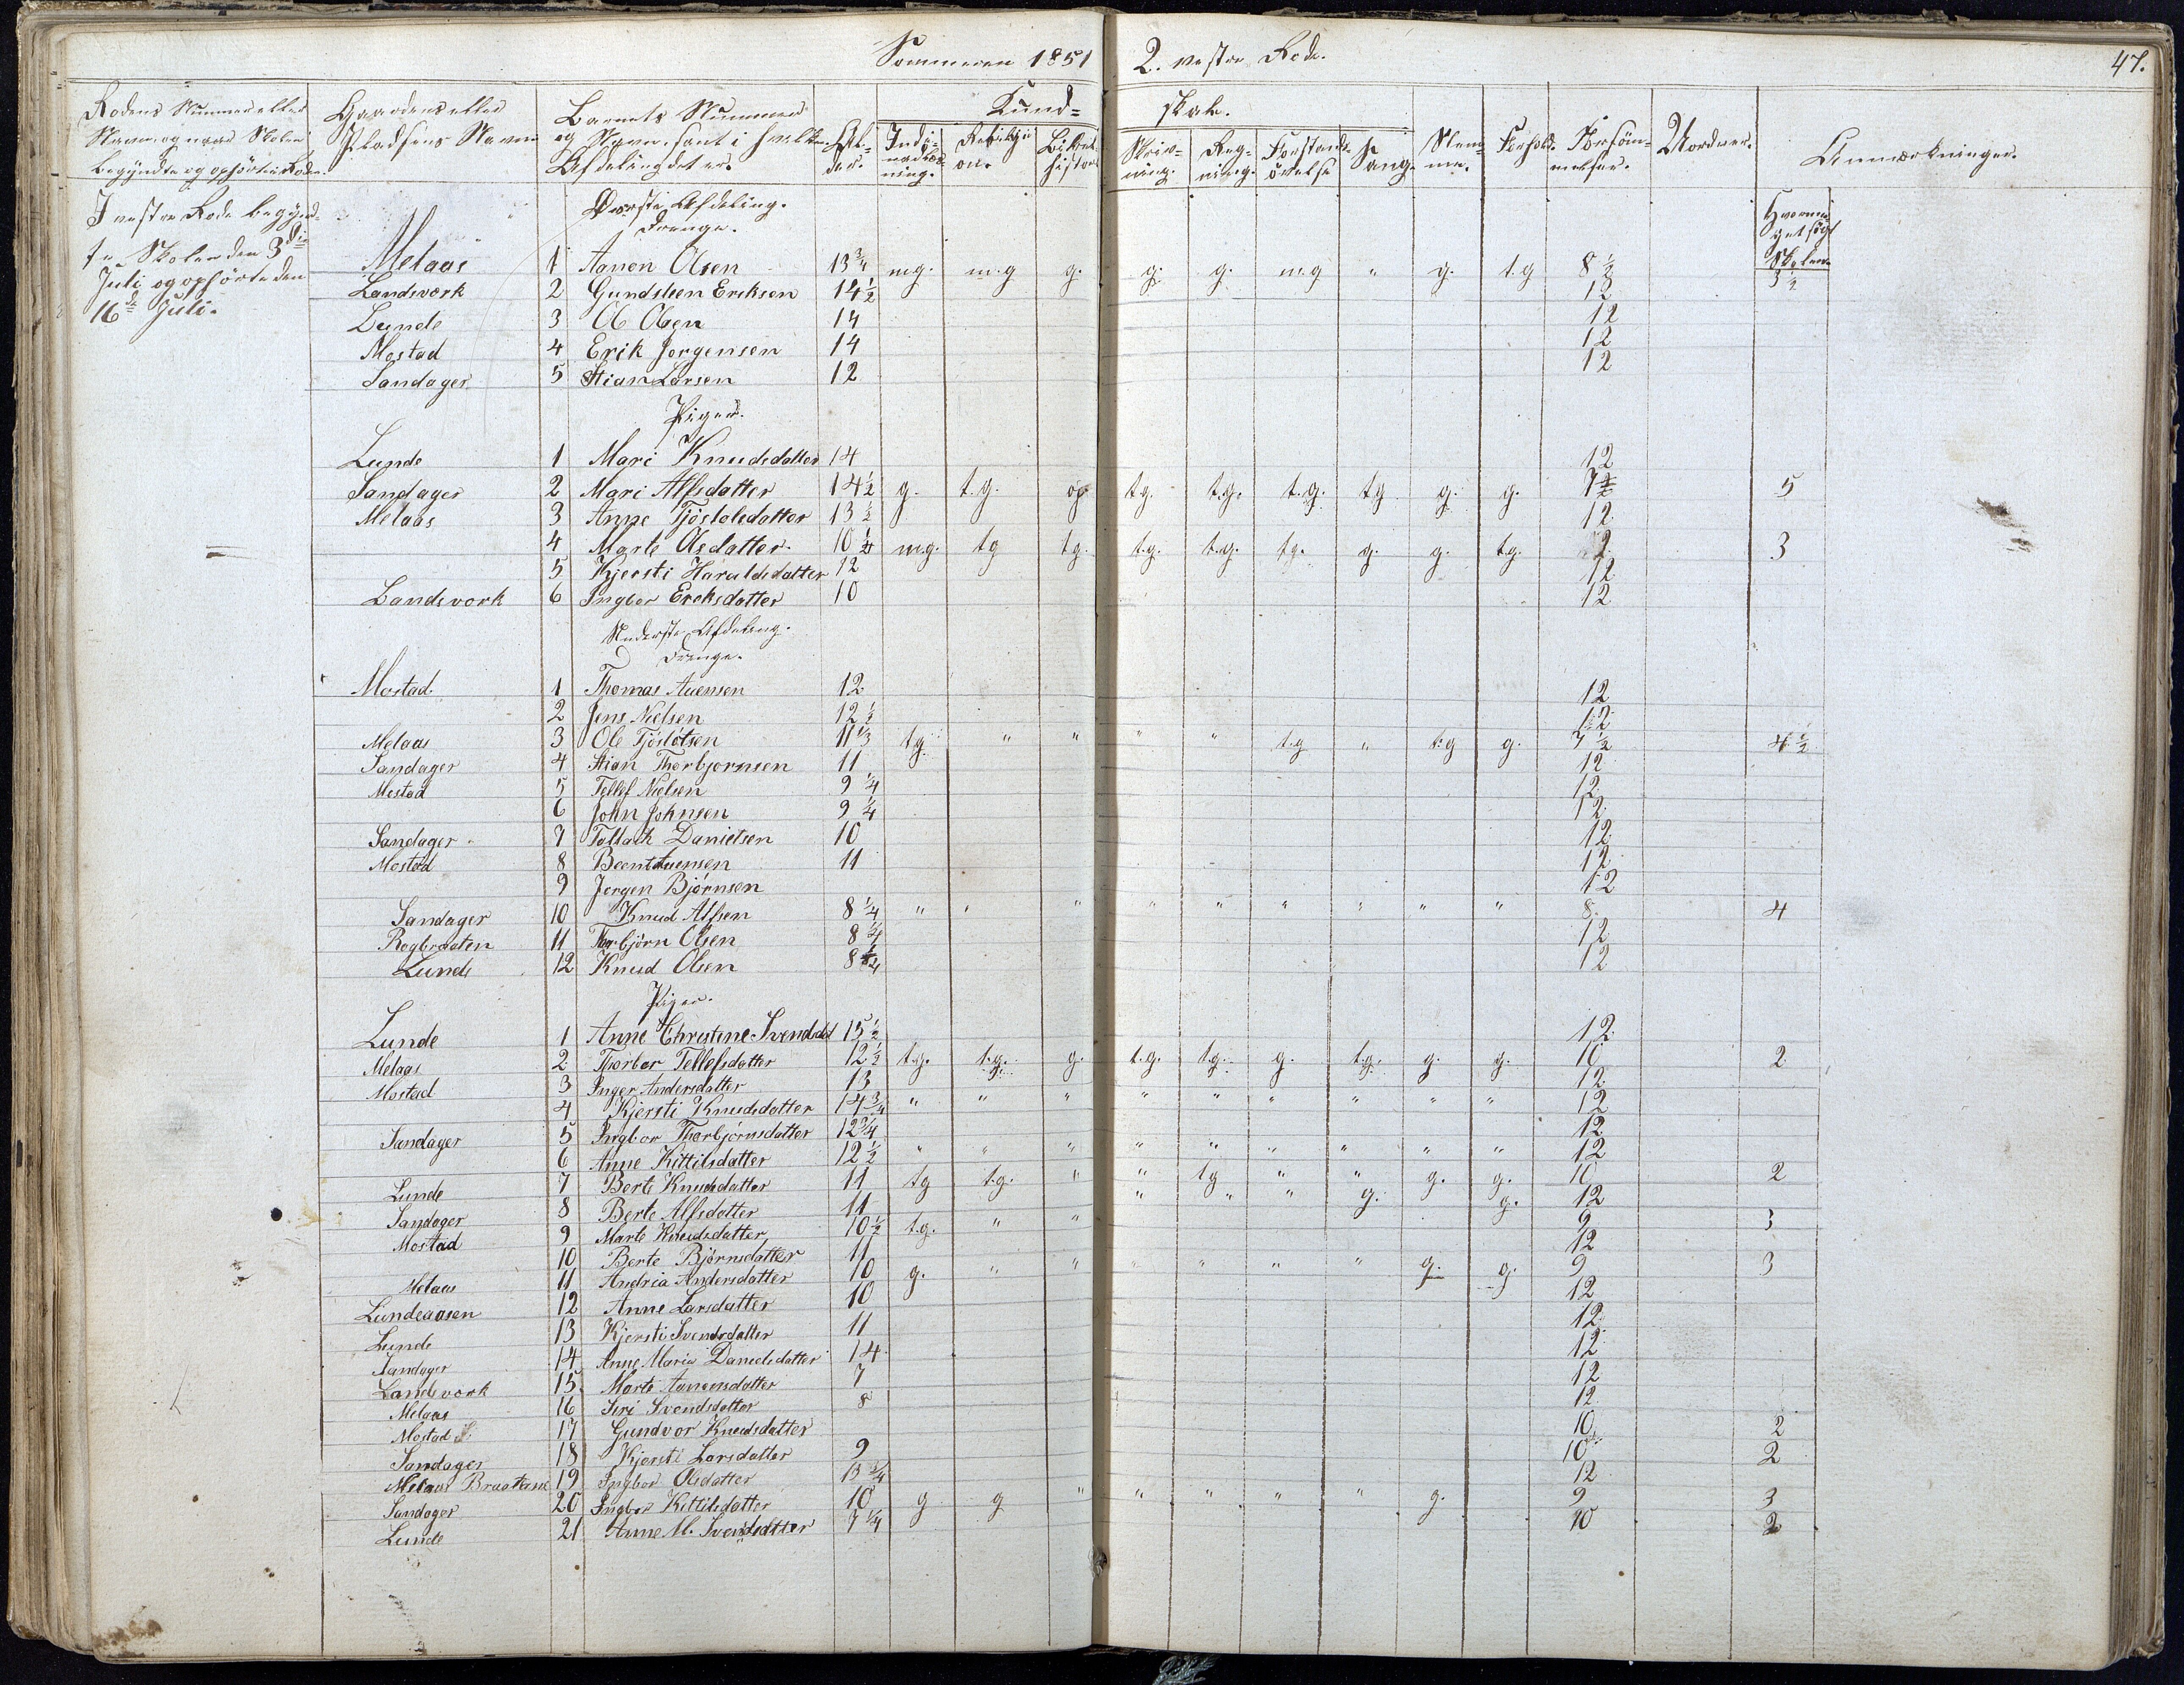 Sommeren 1851 2. vestre Rode. 47.
Rodens Nummer eller Navn og naar Skolen begyndte og ophörte i Roden.
Gaardens eller Pladsens Navn
Barnets Nummer og Navn, samt i hvilken Afdeling det er.
Alder.
Kundskab.
Religion.
Bibelhistorie
Skrivning.
Regning.
Forstandsövelse
Sang.
Stemme.
Forhold.
Forsömmelser.
Anmærkninger.
I vestre Rode begyndte Skolen den 3die Juli og ophörte den 16de Juli.
Överste Afdeling.
Drenge.
Skolen
Melaas 1 Aanon Olsen 13 3/4 m.g. m.g g. g. g. m.g " g. t.g 8 1/2 3 1/2
Landsvork 2 Gundsten Eriksen 14 1/2 12
Lunde 3 Ole Olsen 14 12
Mostad 4 Erik Jorgensen 14 12
Sandager 5 Stian Larsen 12 12
Piger.
Lunde 1 Mari Knudsdatter 14 12
Sandager 2 Mari Alfsdatter 14 1/2 g. t.g. t.g. t.g. t.g. tg g. g. 7 5
Melaas 3 Anne Tjöstolsdatter 13 1/2 12
4 Marte Olsdatter 10 1/4 m.g. tg tg. t.g. t.g. tg. g. g. t.g. 3
5 Kjersti Haraldsdatter 12 12
Landsvork 6 Ingbor Eriksdatter 10 12
Nederste Afdeling.
Drenge.
Mostad 1 Thomas Auensen 12 12
2 Jens Nielsen 12 1/2 12
Melaas 3 Ole Tjöslötsen 11 1/3 tg " " " " t.g " t.g g. 7 1/2 4 1/2
Sandager 4 Stian Thorbjornsen 11 12
Mostad 5 Tellef Nielsen 9 1/4 12
6 John Johnsen 9 1/4 12
Sandager 7 Tollach Danielsen 10 12
Mostad 8 Beent Auensen 11 12
9 Jorgen Bjørnsen 12
Sandager 10 Knud Alfsen 8 1/4 " " " " " " " " " 8 4
Rogbraaten 11 Thorbjörn Olsen 8 12
Lunde 12 Knud Olsen 8 12
Piger.
Lunde 1 Anne Christine Svendsdat 15 1/2 12
Melaas 2 Thorbor Tellefsdatter 12 1/2 t.g. t.g. g. t.g. t.g. g. t.g. g. g. 10 2
Mostad 3 Inger Andersdatter 13 12
4 Kjersti Knudsdatter 14 3/4 " " " " " " " " " 12
Sandager 5 Ingbor Thorbjørnsdatter 12 3/4 12
6 Anne Kittilsdatter 12 1/2 " " " " " " " " " 12
Lunde 7 Berte Knudsdatter 11 tg t.g. " " tg " " g. g. 10 2
Sandager 8 Berte Alfsdatter 11 " " " g. g. 12
Mostad 9 Marte Knudsdatter 10 1/2 t.g. " " 9 3
10 Berte Björnsdatter 11 12
Melaas 11 Andria Andersdatter 10 g. " " " " " " g. g. 9 3
Lundeaasen 12 Anne Larsdatter 10 12
Lunde 13 Kjersti Svendsdatter 11 12
Sandager 14 Anne Maria Danielsdatter 14 12
Landsvork 15 Marte Aanonsdatter 7 12
Melaas 16 Siri Svendsdatter 8 12
Mostad 17 Gundvor Knudsdatter 10 2
Sandager 18 Kjersti Larsdatter 9 10 2
Melaas Braatene 19 Ingbor Olsdatter 13 3/4 12
Sandager 20 Ingbor Kittilsdatter 10 g g " " " " " g. 9 3
Lunde 21 Anne M. Svendsdatter 7 1/4 10 2